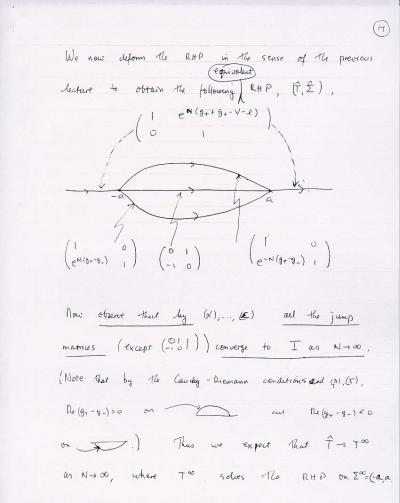 17
We now deform the RHP in the sense of the previous
equivalent
lecture to obtain the following RHP, (T̂, Σ̂),
( 1 e^{N(g₊+g₋-V-l)}
0 1 )
-a a
( 1 0 ( 0 1 ( 1 0
e^{N(g₊-g₋)} 1 ) -1 0 ) e^{-N(g₊-g₋)} 1 )
Now observe that by (α),..., (ε) all the jump
matrices (except (0 1 -1 0)) converge to I as N→∞.
(Note that by the Cauchy-Riemann conditions and (β),
Re(g₊-g₋)>0 on and Re(g₊-g₋)<0
on .) Thus we expect that T̂ → T^∞
as N→∞, where T^∞ solves the RHP on Σ^∞=(-a,a